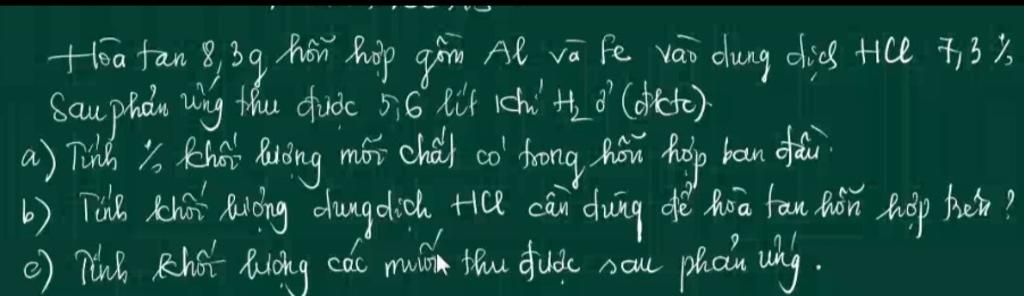 Hòa tan 8,3g hỗn hợp gồm Al và Fe vào dung dịch HCl 7,3 %
Sau phản ứng thu được 5,6 lít khí H₂ ở (đktc).
a) Tính % khối lượng mỗi chất có trong hỗn hợp ban đầu.
b) Tính khối lượng dung dịch HCl cần dùng để hòa tan hỗn hợp trên ?
c) Tính khối lượng các muối thu được sau phản ứng.